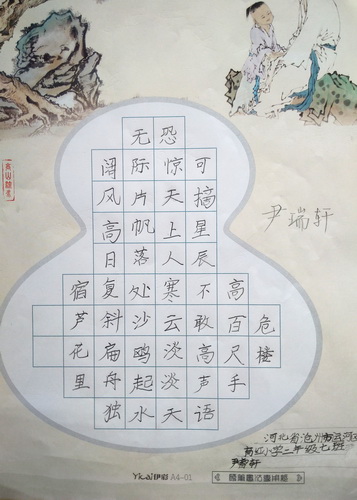 危楼
高百尺手
可摘星辰不敢高声语
恐惊天上人寒云淡淡天
无际片帆落处沙鸥起水
阔风高日复斜扁舟独
宿芦花里
尹瑞轩
河北省沧州市运河区
小学二年级七班
尹瑞轩
Yicai 伊彩 A4-01
硬笔书法专用纸